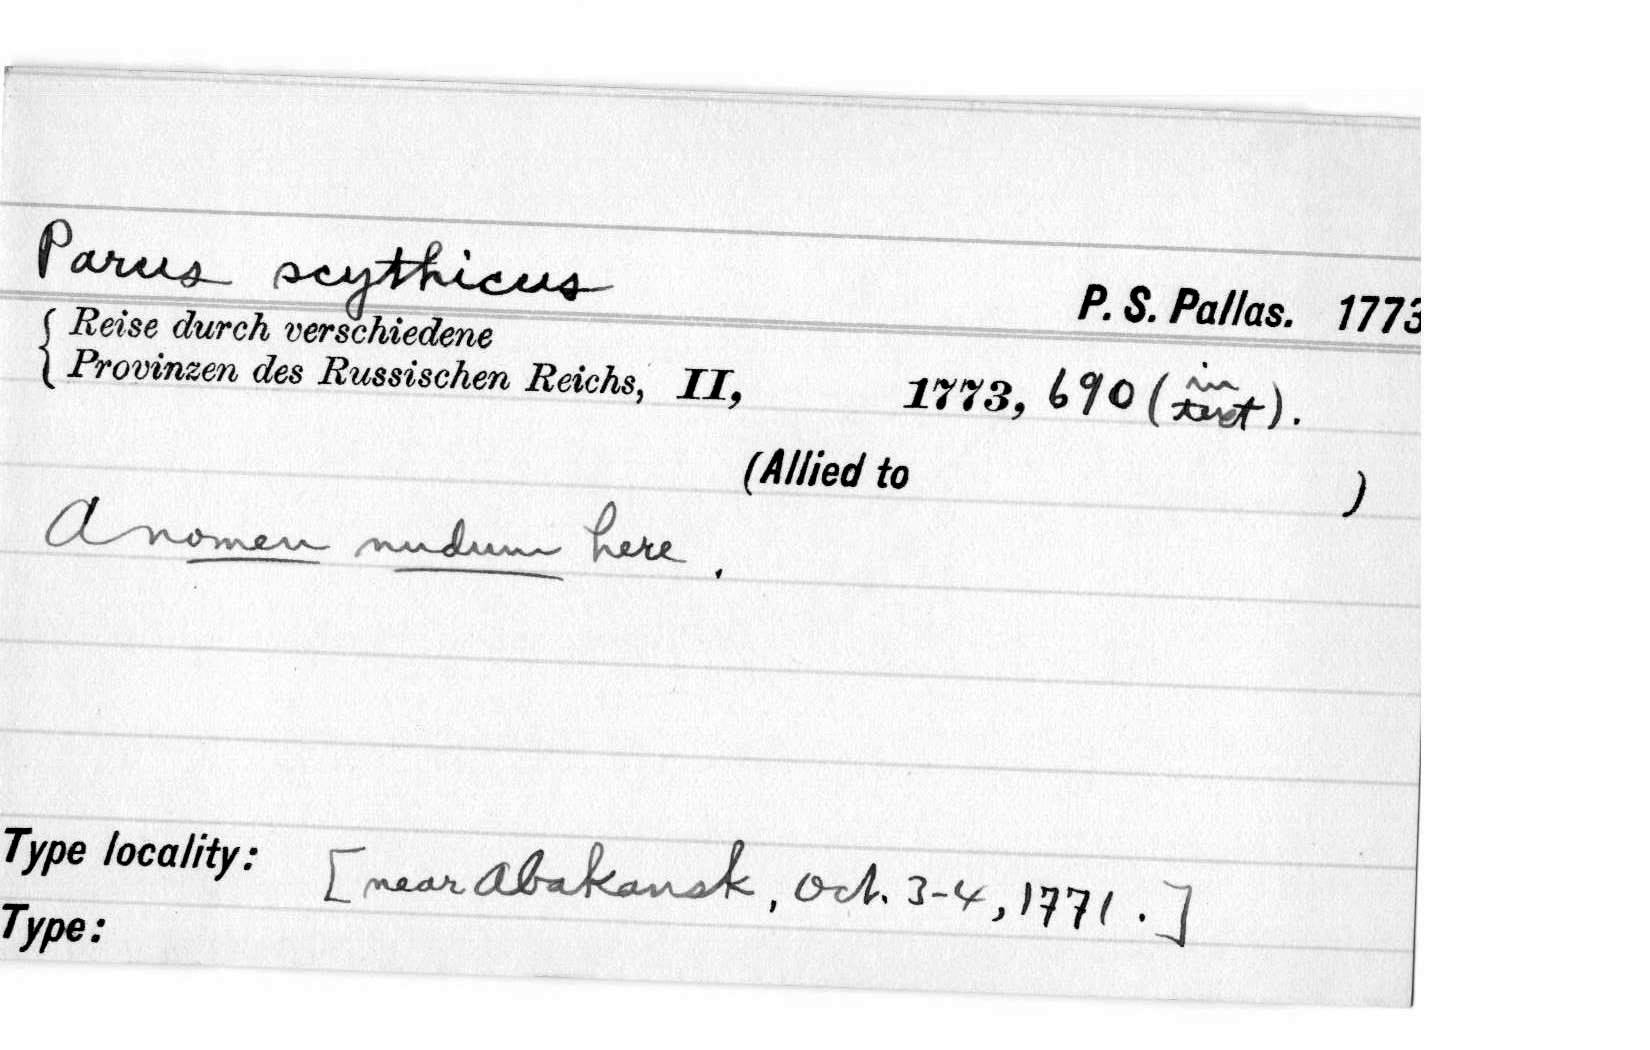 Parus scythicus
P. S. Pallas. 1773
{ Reise durch verschiedene
Provinzen des Russischen Reichs, II, 1773, 690 (in text).
(Allied to )
A nomen nudum here.
Type locality: [near Abakansk, Oct. 3-4, 1771.]
Type: